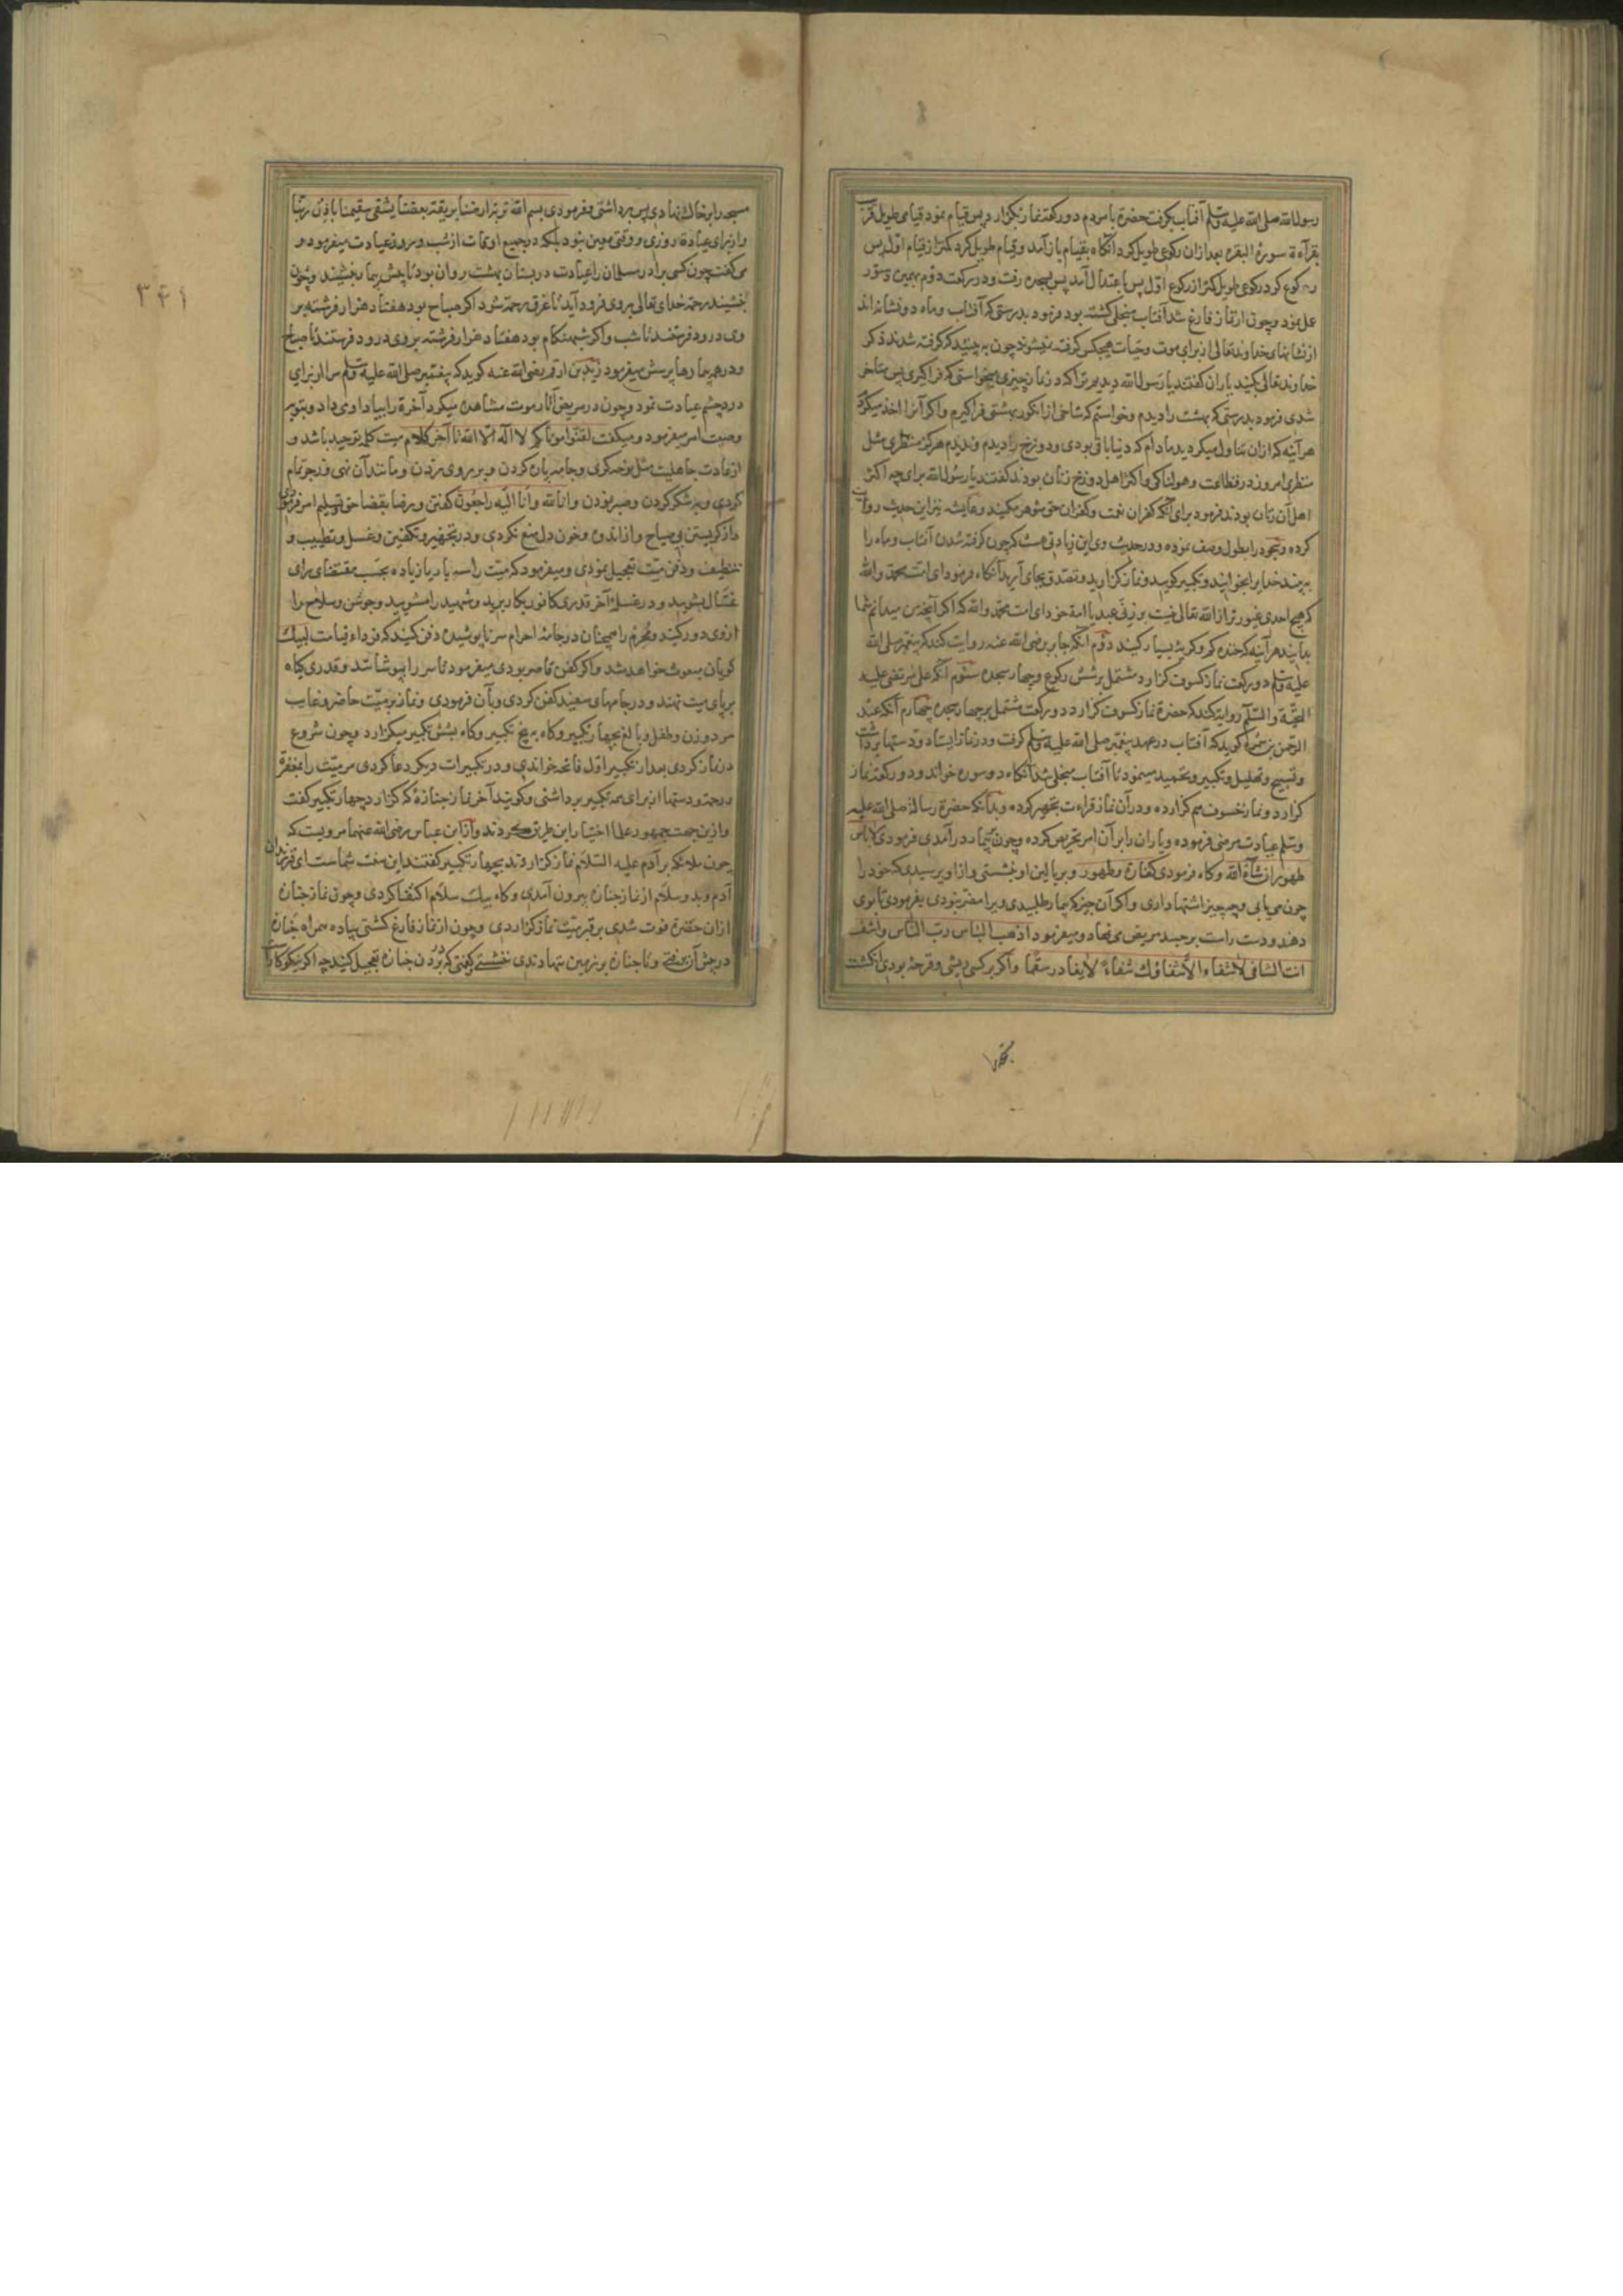 رسول الله صلی الله علیه وسلم آفتاب بگرفت حضرة با مردم دو رکعت نماز بگزارد پس قیام نمود قیامی طویل قریب
بقرآءة سورة البقره بعد ازان رکوعی طویل کرد آنگاه بقیام باز آمد و قیام طویل کرد کمتر از قیام اول پس
رکوع کرد رکوعی طویل کمتر از رکوع اول پس باعتدال آمد پس بسجده رفت و در رکعت دوم بهمین دستور
عمل نمود و چون از نماز فارغ شد آفتاب منجلی گشته بود فرمود بدرستی که آفتاب و ماه دو نشانه اند
از نشانهای خداوند تعالی از برای موت و حیات هیچکس گرفته نمیشوند چون به بینید که گرفته شدند ذکر
خداوند تعالی کنید یاران گفتند یا رسول الله دیدیم ترا که در نماز چیزی میخواستی که فراگیری پس متاخر
شدی فرمود بدرستی که بهشت را دیدم و خواستم که شاخی از انگور بهشتی فراگیرم و اگر آنرا اخذ میکردم
هرآینه که ازان تناول میکردید مادام که دنیا باقی بودی و دوزخ را دیدم و ندیدم هرگز منظری مثل
منظری امروز در فظاعت و هولناکی و اکثر اهل دوزخ زنان بودند گفتند یا رسول الله برای چه اکثر
اهل آن زنان بودند فرمود برای آنکه کفران نعمت و کفران حق شوهر میکنند و عایشه نیز این حدیث روایت
کرده و سجود را بطول وصف نموده و در حدیث وی این زیادتی هست که چون گرفته شدن آفتاب و ماه را
به بینید خدایرا بخوانید و تکبیر گویید و نماز گزارید و تصدق بجای آرید آنگاه فرمود ای امت محمد والله
که هیچ احدی غیورتر از الله تعالی نیست بر زنی عبد یا امة خود ای امت محمد والله که اگر آنچه من میدانم شما
بدانید هرآینه که خنده کم و گریه بسیار کنید دوم آنکه جابر رضی الله عنه روایت کند که پیغمبر صلی الله
علیه وسلم دو رکعت نماز کسوف گزارد مشتمل بر شش رکوع و چهار سجده سوم آنکه علی مرتضی علیه
التحیة والسلام روایة کند که حضرة نماز کسوف گزارد دو رکعت مشتمل بر چهار سجده چهارم آنکه عبد
الرحمن بن سمره گوید که آفتاب در عهد پیغمبر صلی الله علیه وسلم گرفت و در نماز ایستاد و دستها برداشت
و تسبیح و تهلیل و تکبیر و تحمید مینمود تا آفتاب منجلی شد آنگاه دو سوره خواند و دو رکعت نماز
گزارد و نماز خسوف هم گزارده و در آن نماز قراءت بجهر کرده و بدآنکه حضرة رسالة صلی الله علیه
وسلم عیادت مرضی فرموده و یاران را بر آن امر تحریص کرده و چون بیمار در آمدی فرمودی لا باس
طهور ان شآء الله و گاه فرمودی کفارة و طهور و بر بالین او نشستی و از او پرسیدی که خود را
چون می یابی و چه چیز اشتها داری و اگر آن چیز که بیمار طلبیدی ویرا مضر نبودی بفرمودی تا بوی
دهند و دست راست بر جسد مریض می نهاد و میفرمود اذهب الباس رب الناس واشف
انت الشافی لا شفاء الا شفاؤک شفاءً لا یغادر سقما و اگر بر کسی ریشی و قرحه بودی انگشت
مسبحه را بر خاک نهادی پس برداشتی و فرمودی بسم الله تربة ارضنا بریقة بعضنا یشفی سقیمنا باذن ربنا
و از برای عیادة روزی و وقتی معین نبود بلکه در جمیع اوقات از شب و روز عیادت میفرمود و
می گفت چون کسی برادر مسلمان را عیادت در بستان بهشت روان بود تا پیش بیمار بنشیند و چون
بنشیند رحمة خدای تعالی بروی فرود آید تا غرق رحمة شود اگر صباح بود هفتاد هزار فرشته بر
وی درود فرستند تا شب و اگر شبهنگام بود هفتاد هزار فرشته بروی درود فرستند تا صباح
و در همه بیماریها پرسش میفرمود زید بن ارقم رضی الله عنه گوید که پیغمبر صلی الله علیه وسلم مرا از برای
درد چشم عیادت نمود و چون در مریض آثار موت مشاهده میکرد آخرة را بیاد او می داد و بتوبه
وصیت امر میفرمود و میگفت لقنوا موتاکم لا اله الا الله تا آخر کلام میت کلمه توحید باشد و
از عادت جاهلیت مثل نوحه گری و جامه پاره کردن و بر روی زدن و مانند آن نهی و زجر تمام
کردی و به شکر کردن و صبر نمودن و انا لله وانا الیه راجعون گفتن و رضا بقضا حق تسلیم امر فرمودی
و از گریستن بی صیاح و از اندوه و خون دل منع نکردی و در تجهیز و تکفین و غسل و تطییب و
تنظیف و دفن میت تعجیل نمودی و میفرمود که میت را سه بار یا زیاده بحسب مقتضای رای
غسال بشویید و در غسل آخر قدری کافور بکار برید و شهید را مشویید و جوشن و سلاح را
از وی دور کنید و محرم را همچنان در جامه احرام سر نا پوشیده دفن کنید که فرداء قیامت لبیک
گویان مبعوث خواهد شد و اگر کفن قاصر بودی میفرمود تا سر را بپوشانند و قدری گیاه
بر پای میت نهند و در جامهای سفید کفن کردی و بآن فرمودی و نماز بر میت حاضر و غایب
مرد و زن و طفل و بالغ بچهار تکبیر و گاه به پنج تکبیر و گاه بشش تکبیر میگزارد و چون شروع
در نماز کردی بعد از تکبیر اول فاتحه خواندی و در تکبیرات دیگر دعا کردی مر میت را بمغفرة
و رحمة و دستها از برای همه تکبیر برداشتی و گویند آخر نماز جنازه که گزارد چهار تکبیر گفت
و ازین جهت جمهور علما اختیار این طریق کردند و از ابن عباس رضی الله عنهما مرویست که
چون ملائکه بر آدم علیه السلام نماز گزاردند بچهار تکبیر گفتند این سنت شماست ای فرزندان
آدم و بدو سلام از نماز جنازه بیرون آمدی و گاه بیک سلام اکتفا کردی و چون نماز جنازه
ازان حضرة فوت شدی بر قبر میت نماز گزاردی و چون از نماز فارغ گشتی پیاده همراه جنازه
در پیش آن رفتی و تا جنازه بر زمین ننهادندی ننشستی گفتی که در بردن جنازه تعجیل کنید چه اگر نیکوکار
۳۴۱